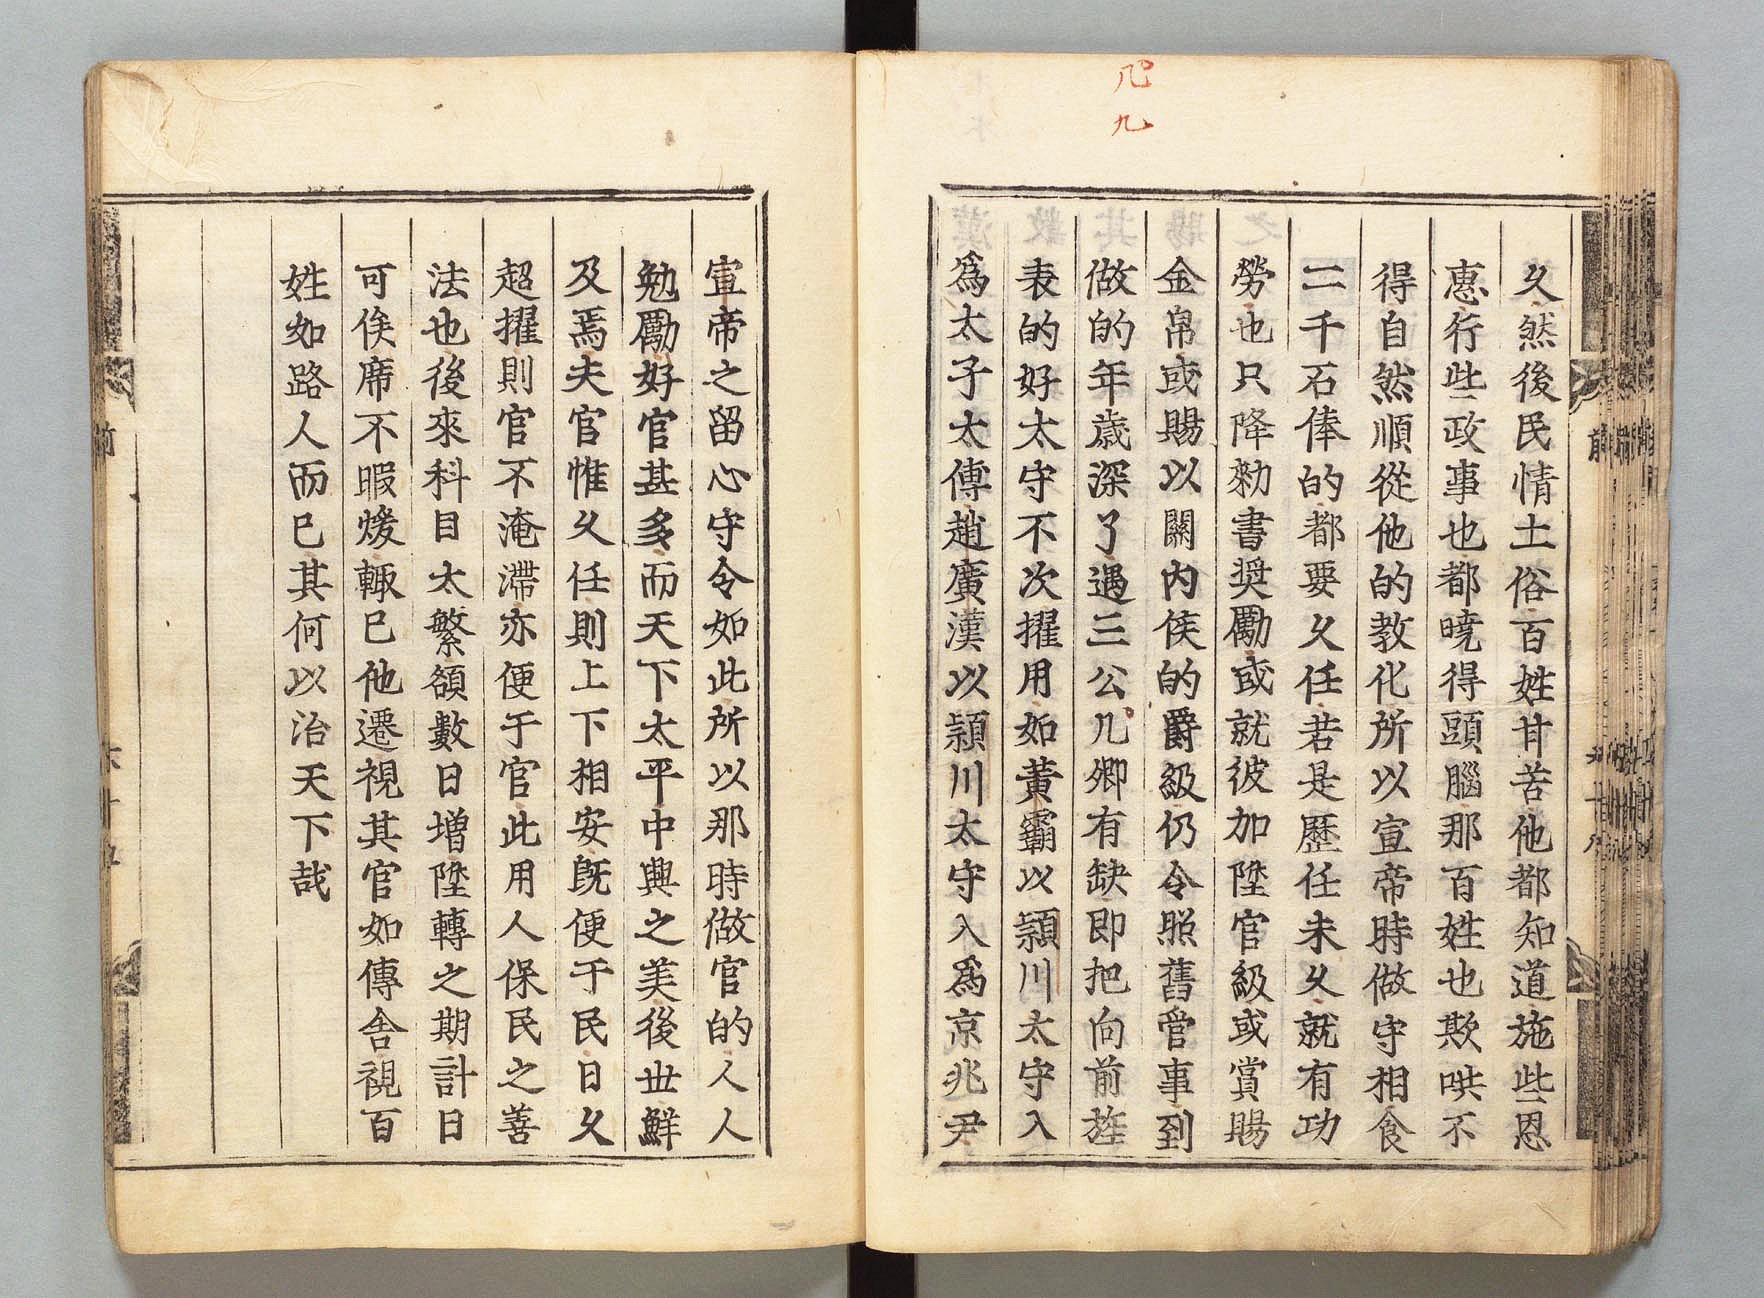 久然後民情土俗百姓甘苦他都知道施些恩
惠行些政事也都曉得頭腦那百姓也欺哄不
得自然順從他的教化所以宣帝時做守相食
二千石俸的都要久任若是歷任未久就有功
勞也只降勑書奬勵或就彼加陞官級或賞賜
金帛或賜以關內侯的爵級仍令照舊管事到
做的年歲深了遇三公几卿有缺即把向前旌
表的好太守不次擢用如黃霸以潁川太守入
爲太子太傅趙廣漢以潁川太守入爲京兆尹
几
九
宣帝之留心守令如此所以那時做官的人人
勉勵好官甚多而天下太平中興之美後世鮮
及焉夫官惟久任則上下相安旣便于民日久
超擢則官不淹滯亦便于官此用人保民之善
法也後來科目太繁額數日增陞轉之期計日
可俟席不暇煖輙已他遷視其官如傳舍視百
姓如路人而已其何以治天下哉